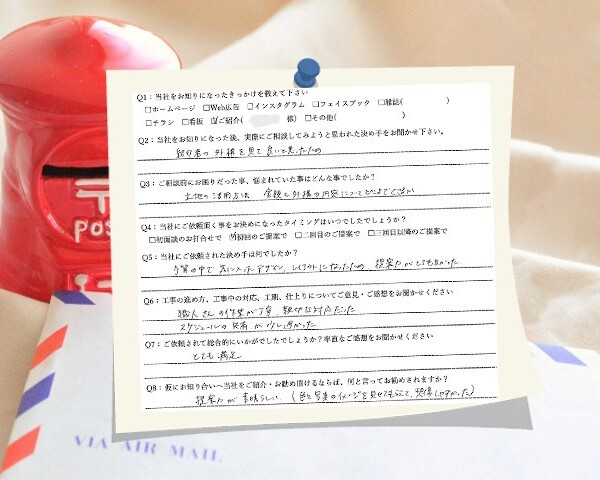 Q1：当社をお知りになったきっかけを教えて下さい
□ホームページ □Web広告 □インスタグラム □フェイスブック □雑誌( )
□チラシ □看板 ☑ご紹介( 様) □その他( )
Q2：当社をお知りになった後、実際にご相談してみようと思われた決め手をお聞かせ下さい。
紹介者の外構を見て良いと思ったため
Q3：ご相談前にお困りだった事、悩まれていた事はどんな事でしたか？
土地の活用方法 金額と外構の内容について
Q4：当社にご依頼頂く事をお決めになったタイミングはいつでしたでしょうか？
□初面談のお打合せで ☑初回のご提案で □二回目のご提案で □三回目以降のご提案で
Q5：当社にご依頼された決め手は何でしたか？
予算の中で 気に入ったデザイン、レイアウトになったため 提案力がとても良かった
Q6：工事の進め方、工事中の対応、工期、仕上りについてご意見・ご感想をお聞かせください
職人さんの作業が丁寧、親切な対応だった
スケジュールの共有が少し遅かった
Q7：ご依頼されて総合的にいかがでしたでしょうか？率直なご感想をお聞かせください
とても満足
Q8：仮にお知り合いへ当社をご紹介・お勧め頂けるならば、何と言ってお勧めされますか？
提案力が素晴らしい (色々写真のイメージを見せてもらえて、想像しやすかった)
〒
POS
VIA AIR MAIL